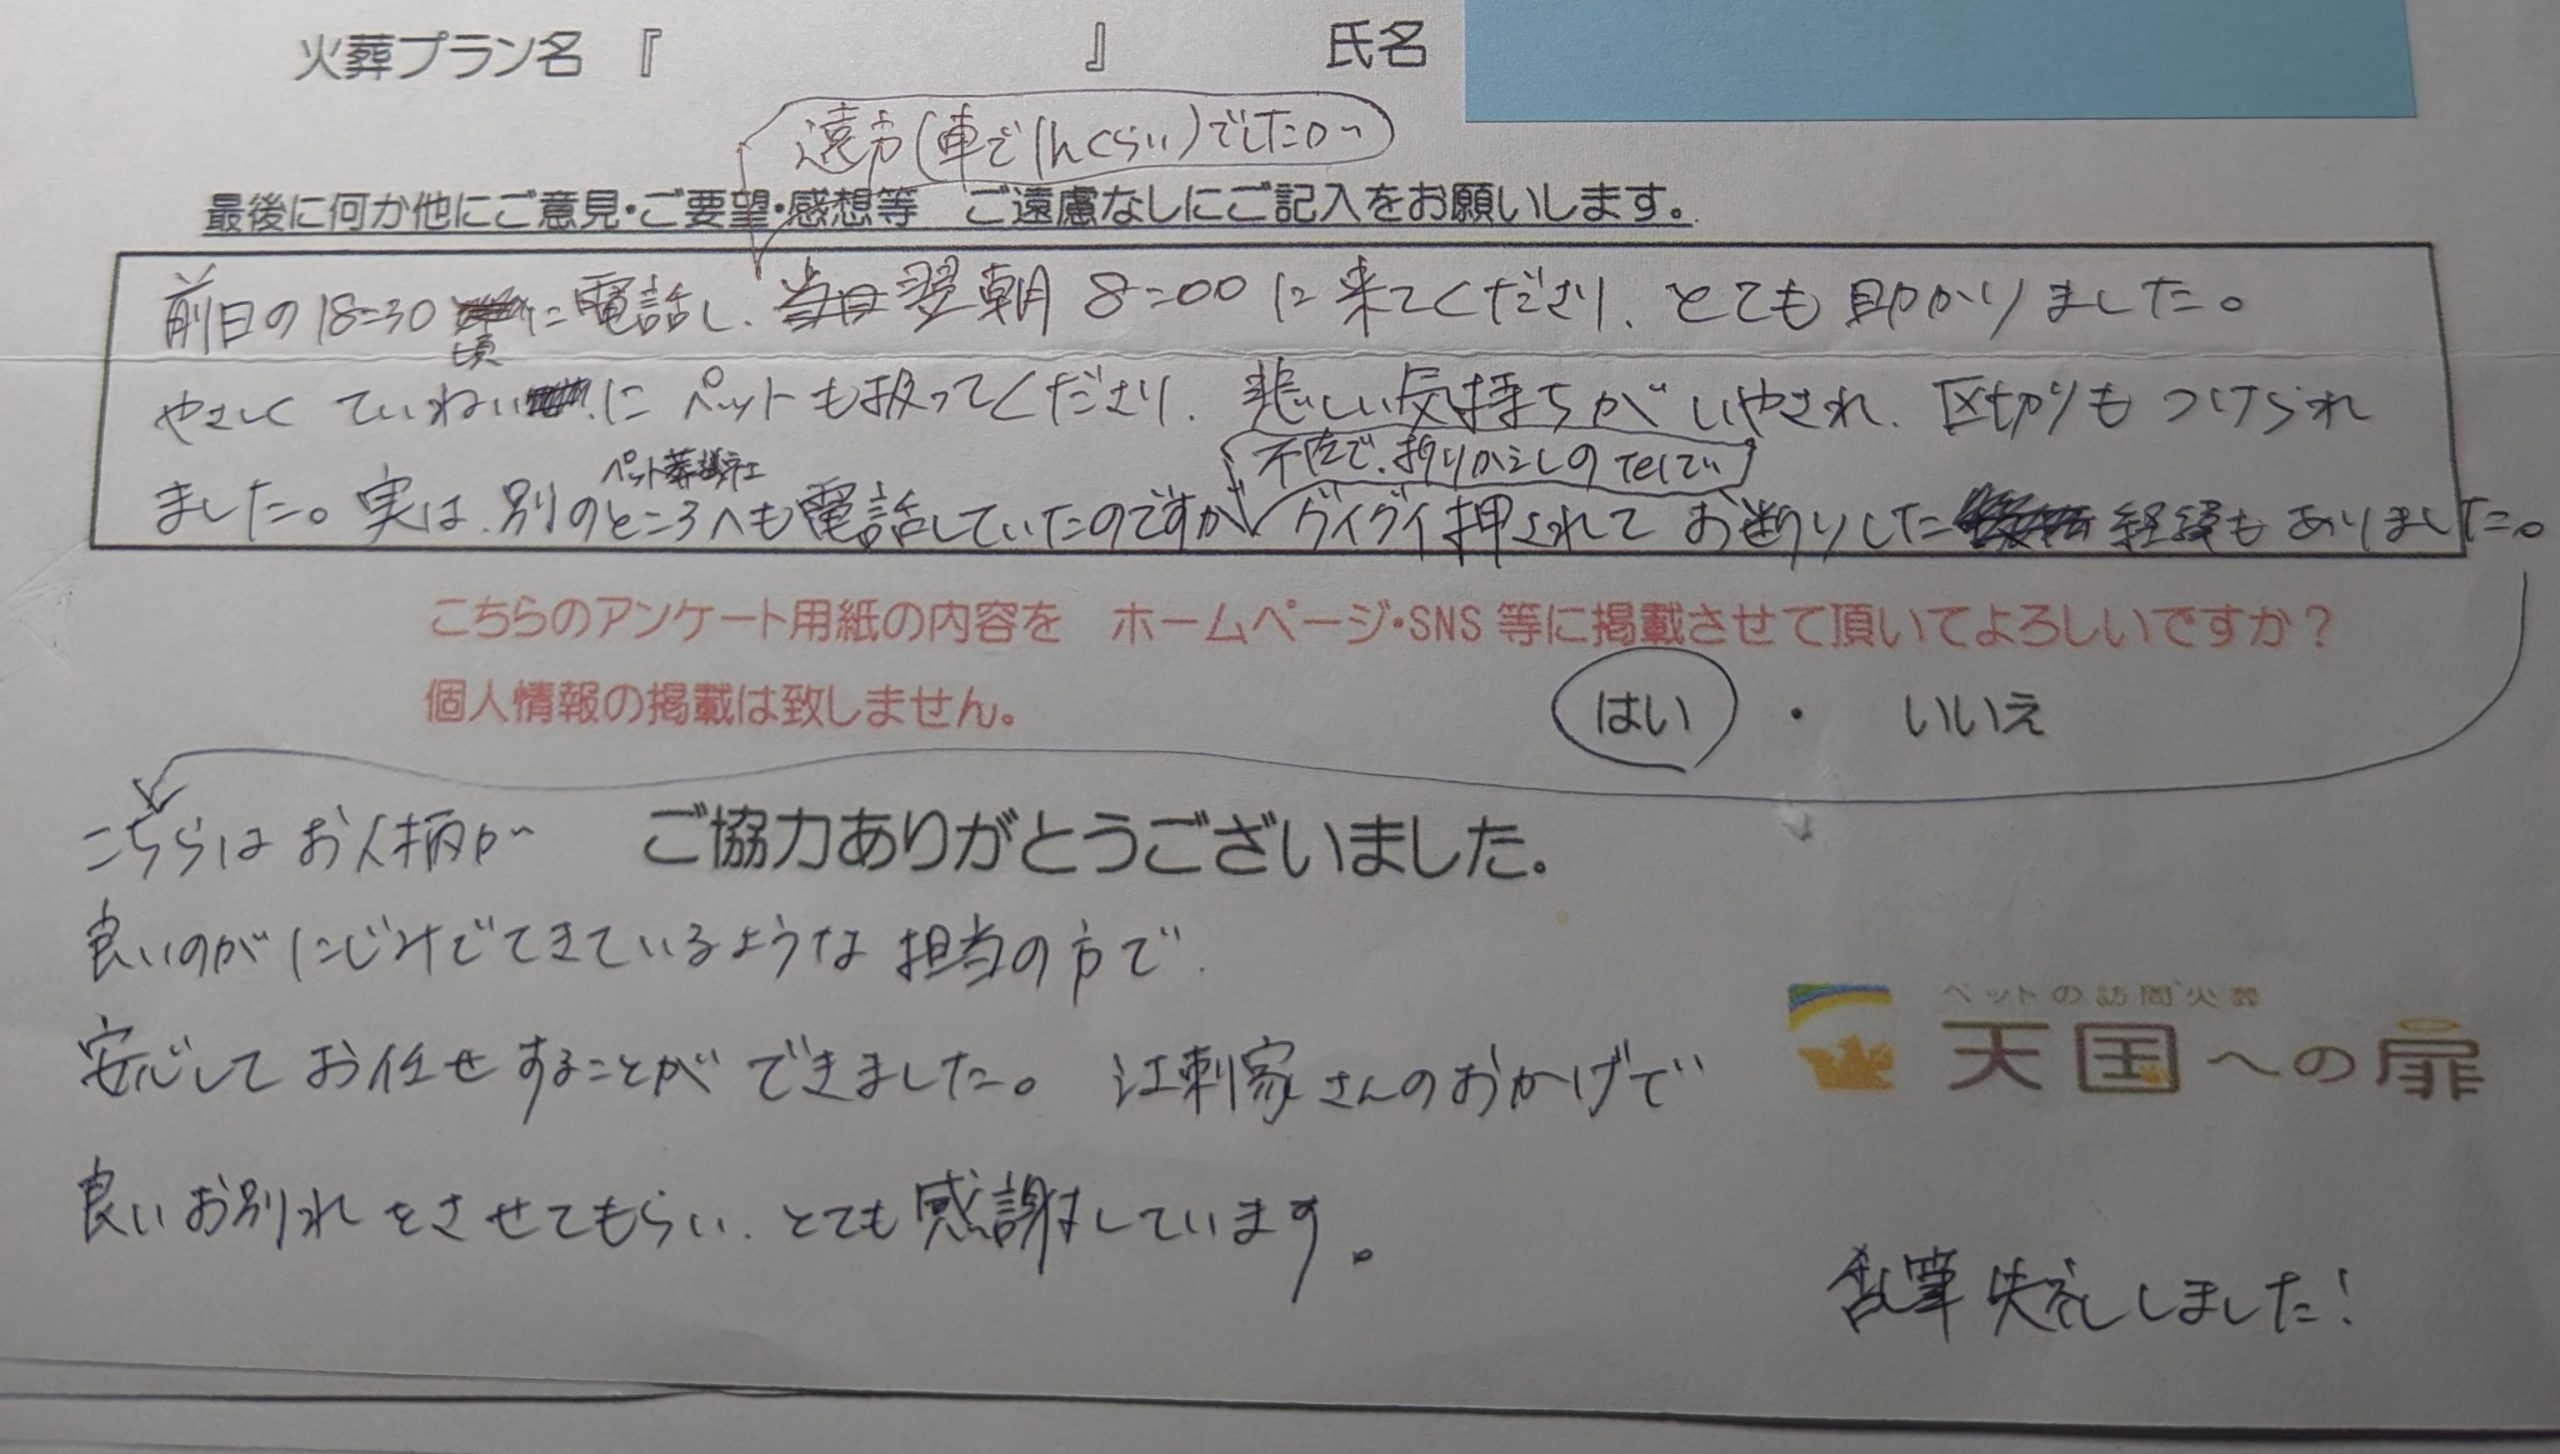 火葬プラン名 『 』 氏名
遠方(車で1hくらい)でしたが
最後に何か他にご意見・ご要望・感想等 ご遠慮なしにご記入をお願いします。
前日の18:30頃に電話し、翌朝8:00に来てくださり、とても助かりました。
やさしくていねいにペットも扱ってくださり、悲しい気持ちがいやされ、区切りもつけられ
ペット葬儀社
不在で、折りかえしのTelで
ました。実は、別のところへも電話していたのですが、グイグイ押されてお断りした経緯もありました。
こちらのアンケート用紙の内容を ホームページ・SNS等に掲載させて頂いてよろしいですか?
個人情報の掲載は致しません。 はい ・ いいえ
こちらはお人柄が ご協力ありがとうございました。
良いのがにじみでてきているような担当の方で、
ペットの訪問火葬
天国への扉
安心してお任せすることができました。江刺家さんのおかげで
良いお別れをさせてもらい、とても感謝しています。
乱筆失礼しました!